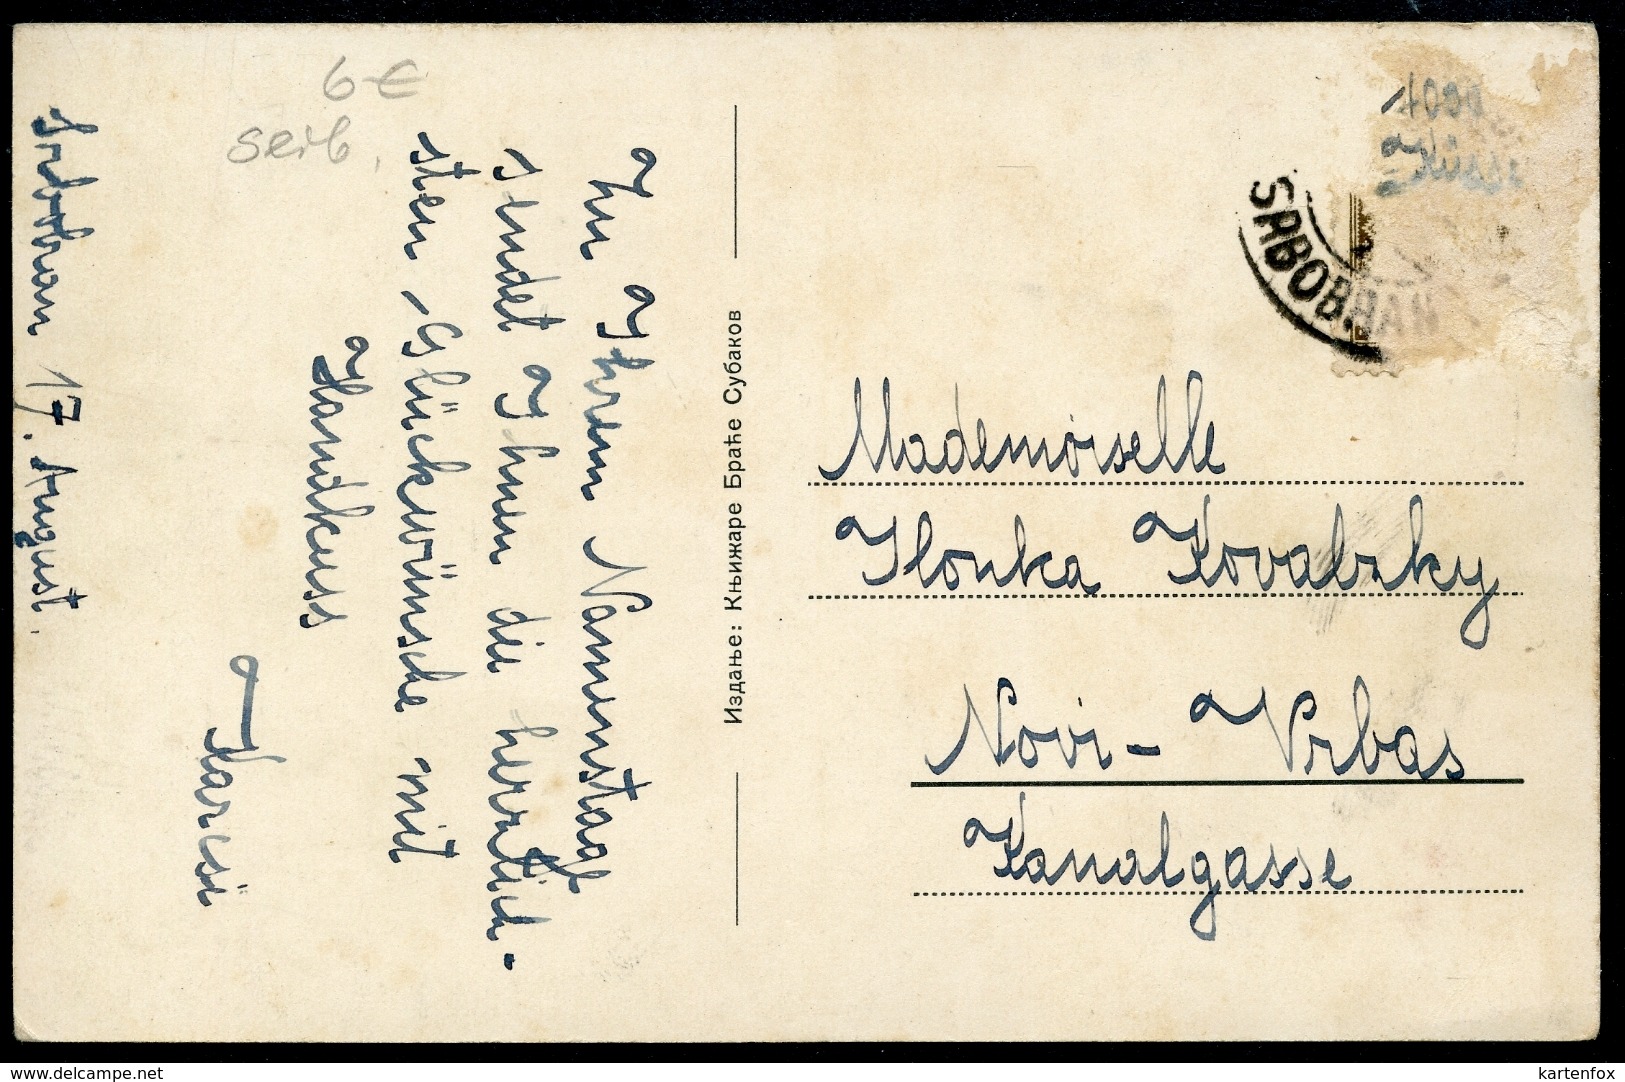 6 €
serb.
Srbobran 17. August.
Zu Ihrem Namenstage
sendet Ihnen die herzlich-
sten Glückwünsche mit
Handkuss
Karcsi
Издање: Књижаре Браће Субаков
1000
Küsse
SRBOBRAN
Mademoiselle
Ilonka Kovalszky
Novi-Vrbas
Kanalgasse
www.delcampe.net
kartenfox